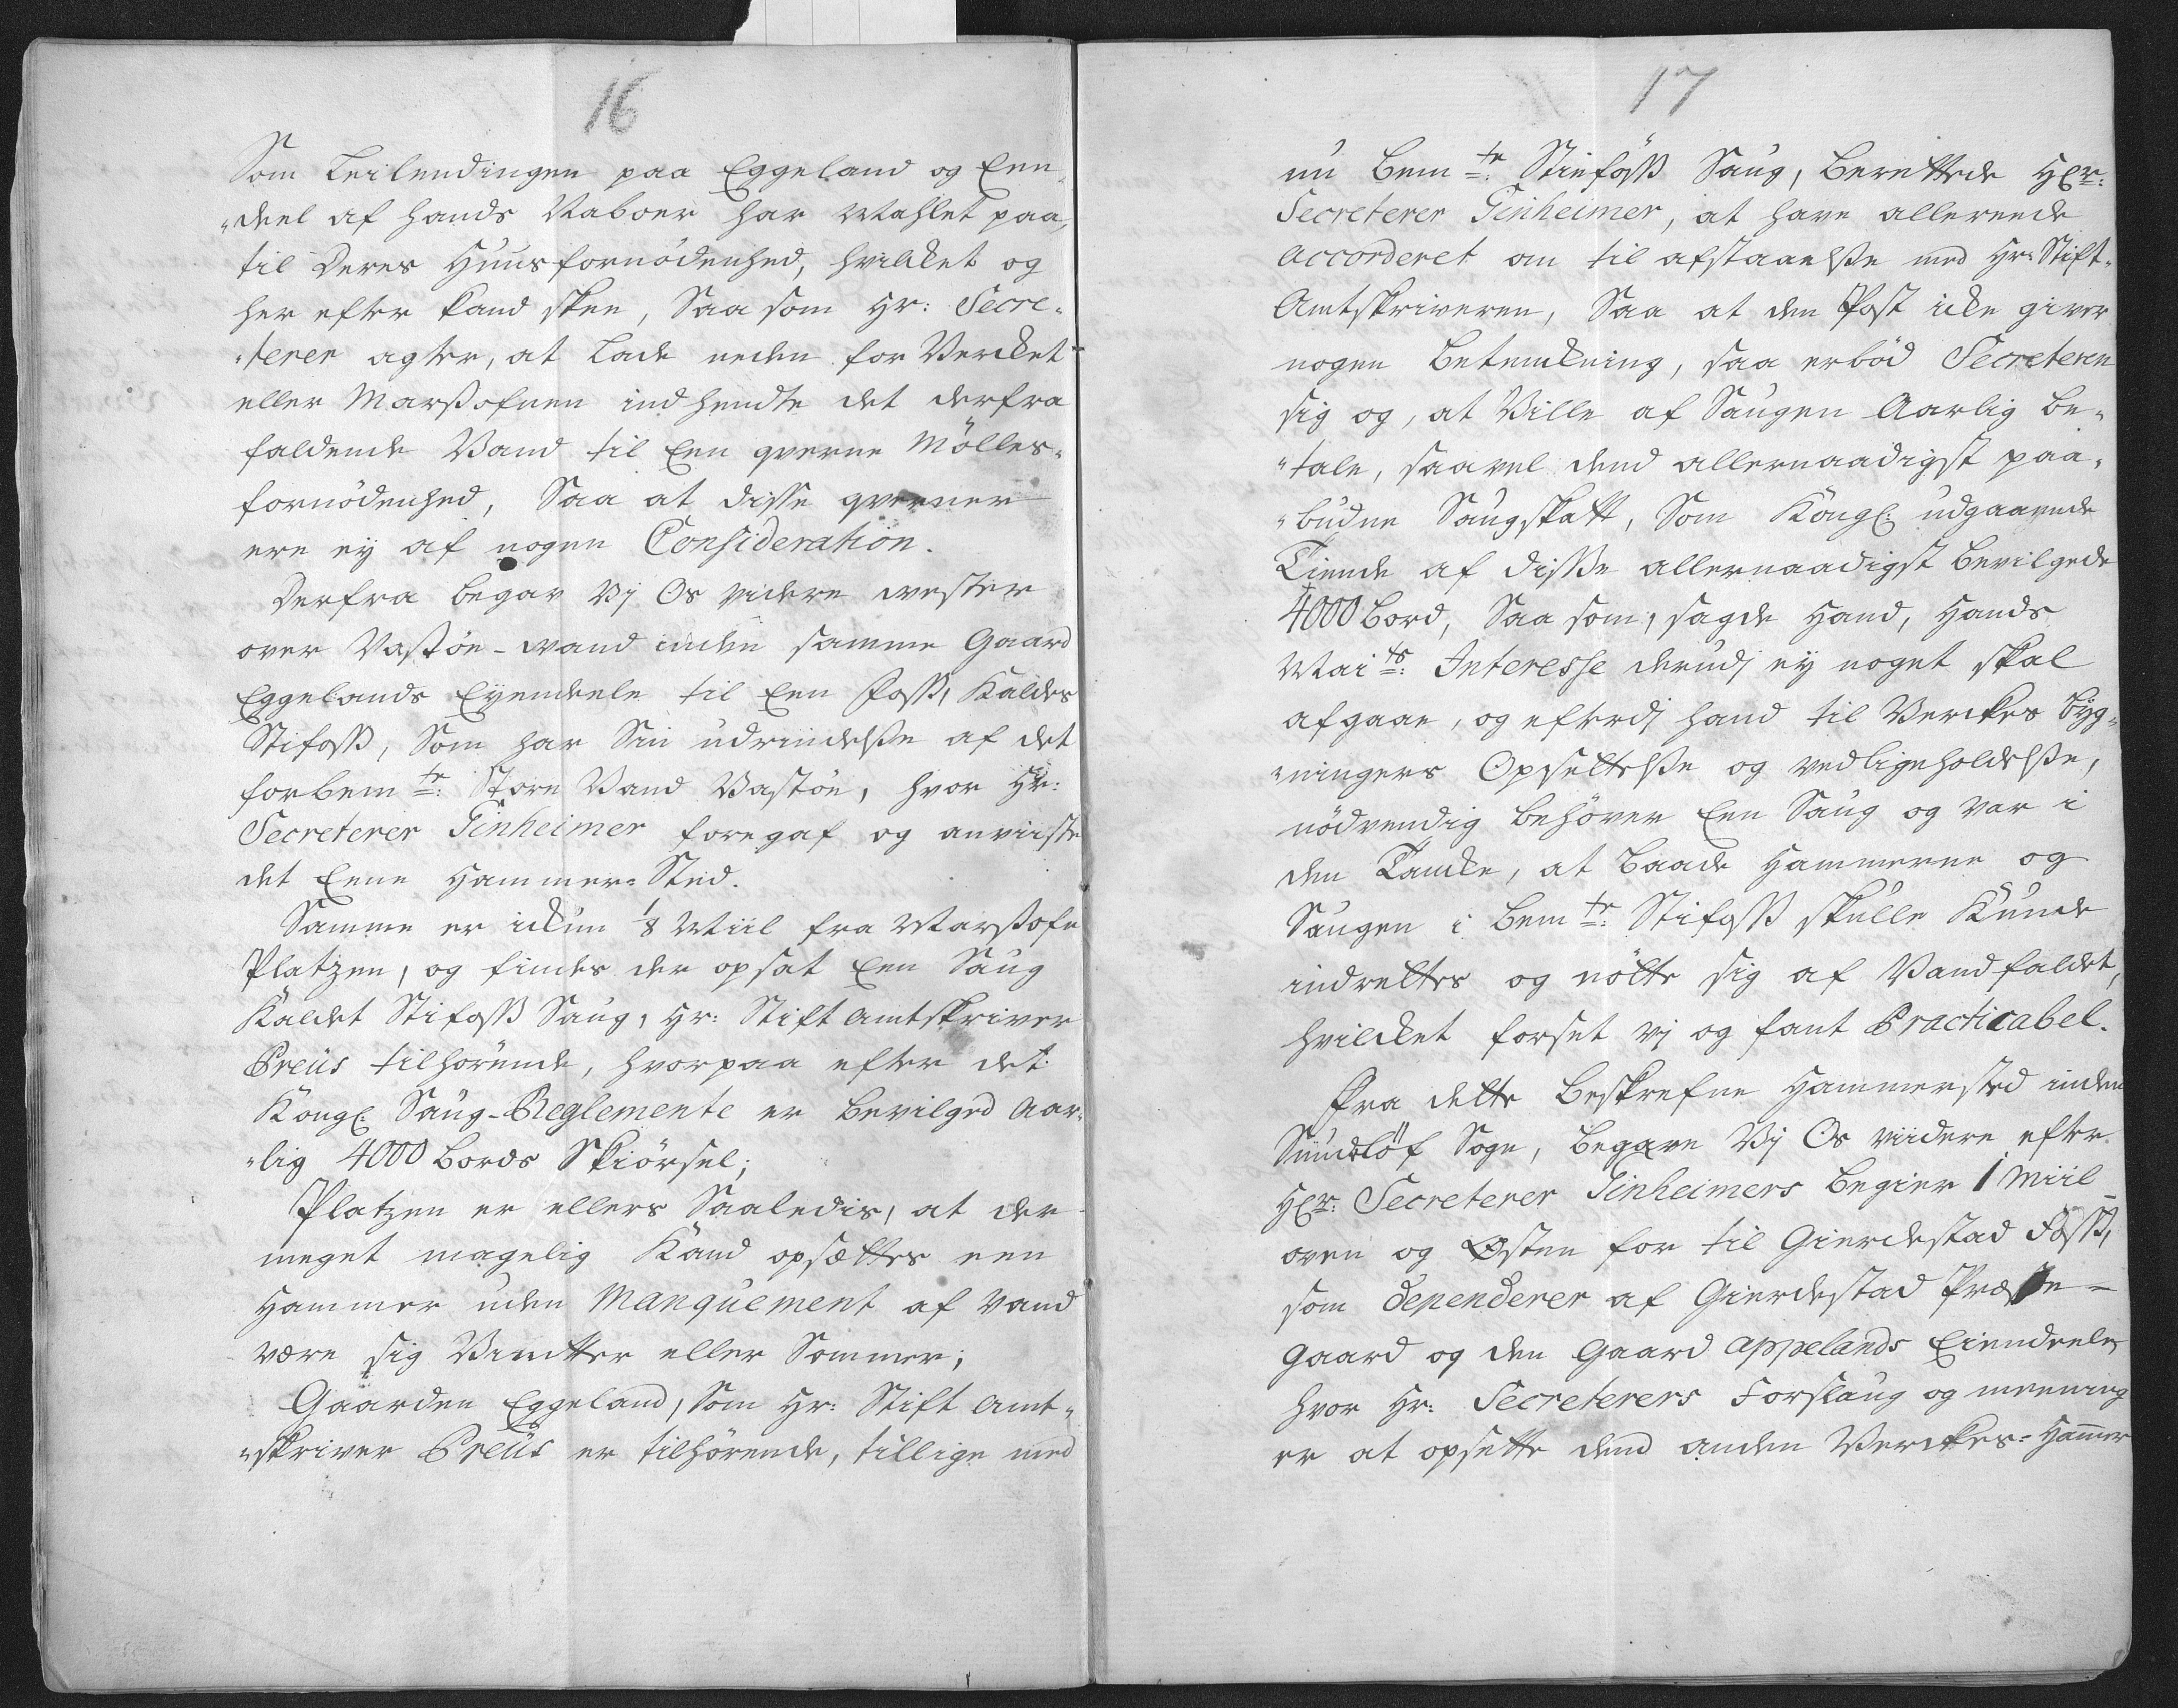 16
Som Leilendingen paa Eggeland og Een¬
"deel af hands Naboer har Mahlet paa,
til Deres Huusfornödenhed, hvilcket og
her efter kand skee, Saa som Hr: Secre¬
"terer agter, at Lade neden for Vercket
eller Marßofnen indhendte det derfra
faldende Vand til Een qverne Mölles¬
fornödenhed, Saa at disse qverner
ere ey af nogen Consideration.
Derfra begav Vj Os videre vester
over Vastöe-vand inden samme Gaard
Eggelands Eyendeele til Een Foß, Kaldes
Stifoß, Som har Sin udrindelße af det
forbemte: Store Vand Vastöe, hvor Hr:
Secreterer Tinheimer foregaf og anviiste
det Eene Hammer-Sted.
Samme er ickun 1/8 Miil fra Marßofn
Platzen, og findes der opsat Een Saug
Kaldet Stifoß Saug, Hr: Stift Amtskriver
Preüs tilhörende, hvorpaa efter det
Kongl: Saug-Reglemente er bevilged Aar¬
"lig 4000 bords Skiörsel;
Platzen er ellers Saaledis, at der
meget magelig Kand opsættes een
Hammer uden Manquement af Vand
være sig Vintter eller Sommer;
Gaarden Eggeland, Som Hr: Stift Amt¬
"skriver Preüs er tilhörende, tillige med
17
nu bemte: Stiefoß Saug, berettede HEr:
Secreterer Tinheimer, at have allereede
accorderet om til afstaaelße med Hr: Stift¬
Amtskriveren, Saa at den Post icke giver
nogen betenckning, saa erböd Secreteren
sig og, at Ville af Saugen Aarlig be¬
"tale, saavel dend allernaadigst paa¬
"budne Saugskatt, Som Kongl: udgaaende
Tiende af diße allernaadigst bevilgede
4000 bord, Saa som, sagde Hand, Hands
Maits: Interesse derudj ey noget skal
afgaae, og efterdj hand til Verckes byg¬
"ningers Opsettelße og vedligeholdelße,
nödvendig behöver Een Saug og var i
den Tancke, at baade Hammeren og
Saugen i bemte: Stifoß skulle Kunde
indrettes og nötte sig af Vandfaldet,
hvilcket forset vj og fant Practicabel.
Fra dette beskrefne Hammersted inden
Sundlöf Sogn, begave Vj Os viidere efter
HEr: Secreterer Tinheimers begier 1 Miil
oven og Østen for til Gierdestad Foß,
som dependerer af Gierdestad Præste¬
gaard og den Gaard Appelands Eiendeele,
hvor Hr: Secreterers Forslaug og meening
er at opsette dend anden Verckes-Hammer